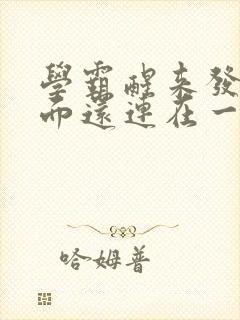 學霸醒來發
而還連在一
哈姆普